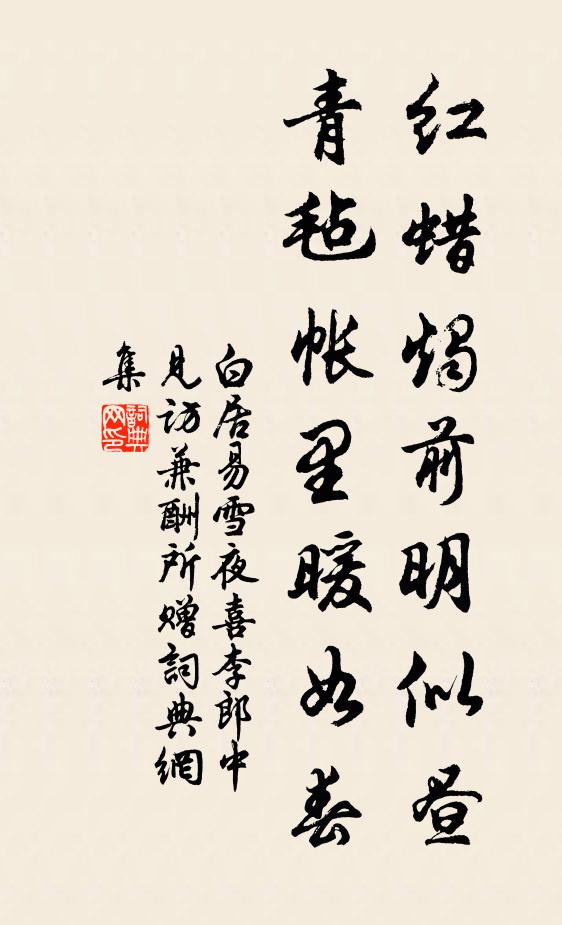 红蜡烛前明似昼
青毡帐里暖如春
白居易雪夜喜李郎中
见访兼酬所赠詞典網
集
詞典网印